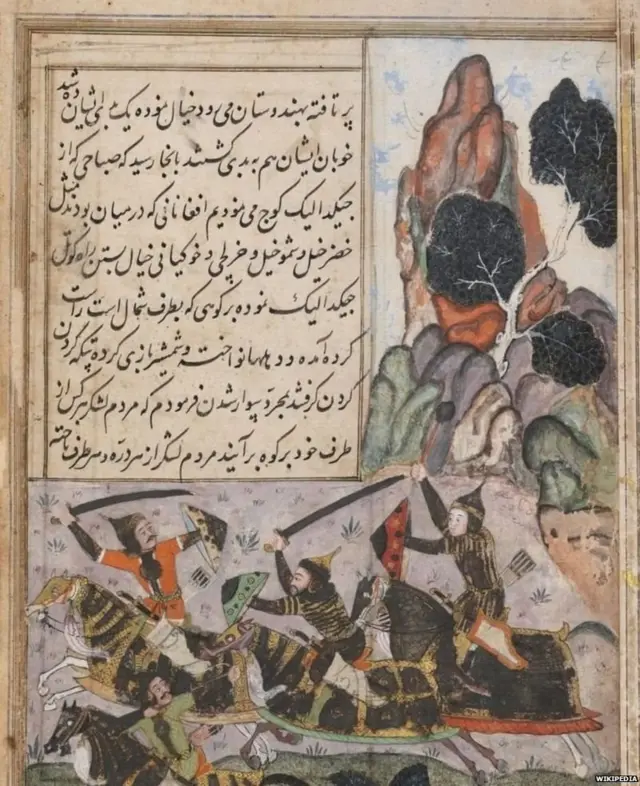 پر تافته بهندوستان می رود خیال نموده یک مرتبه ایشان شد
خوبان ایشان هم به بدی کشتند بانجا رسید که صباحی که از
جیکدالیک کوچ می نمودیم افغانانی که درمیان بودند مثل
خضر خیل و شمو خیل و خرلجی و خوکیانی خیال بستن راه کوتل
جیکدالیک نموده بر کوهی که بطرف شمال است راست
کرده آمده و دهلها نواخته و شمشیر بازی کرده تینکه کردن
کردن گرفتند بمجرد سوار شدن فرمودم که مردم لشکر هر کس از
طرف خود بر کوه بر آیند مردم لشکر از هر دره و هر طرف تاخته
WIKIPEDIA